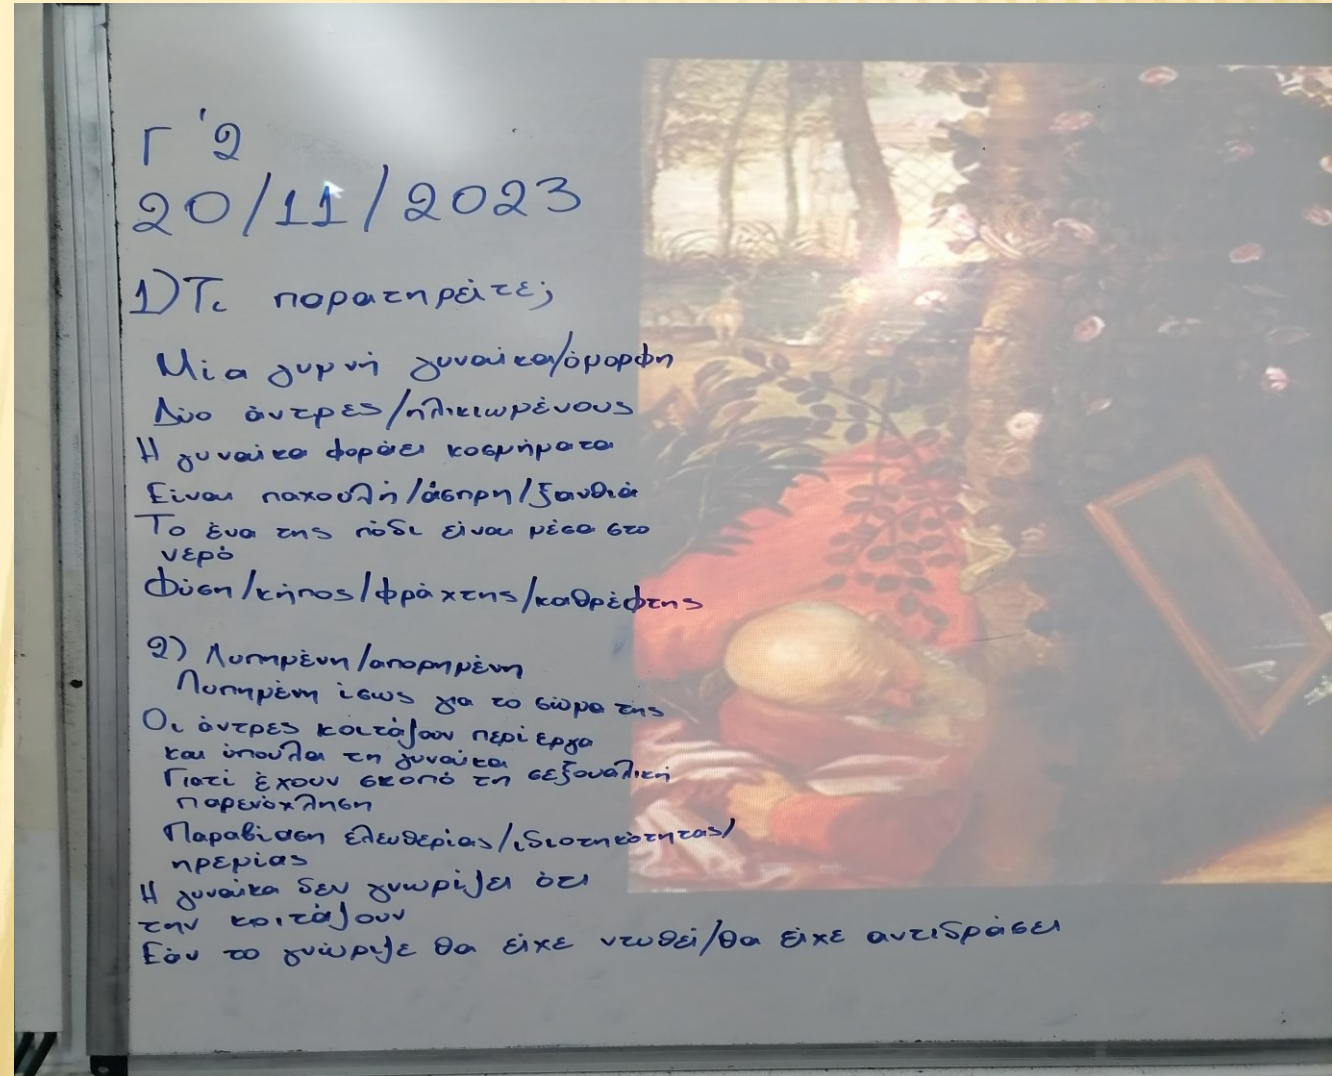 Γ '2
20/11/2023
1) Τι παρατηρείτε;
Μία γυμνή γυναίκα/όμορφη
Δύο άντρες/ηλικιωμένους
Η γυναίκα φοράει κοσμήματα
Είναι παχουλή/άσπρη/ξανθιά
Το ένα της πόδι είναι μέσα στο
νερό
Φύση/κήπος/φράχτης/καθρέφτης
2) Λυπημένη/απορημένη
Λυπημένη ίσως για το σώμα της
Οι άντρες κοιτάζουν περίεργα
και ύπουλα τη γυναίκα
Γιατί έχουν σκοπό τη σεξουαλική
παρενόχληση
Παραβίαση ελευθερίας/ιδιοτηκότητας/
ηρεμίας
Η γυναίκα δεν γνωρίζει ότι
την κοιτάζουν
Εάν το γνώριζε θα είχε ντυθεί/θα είχε αντιδράσει